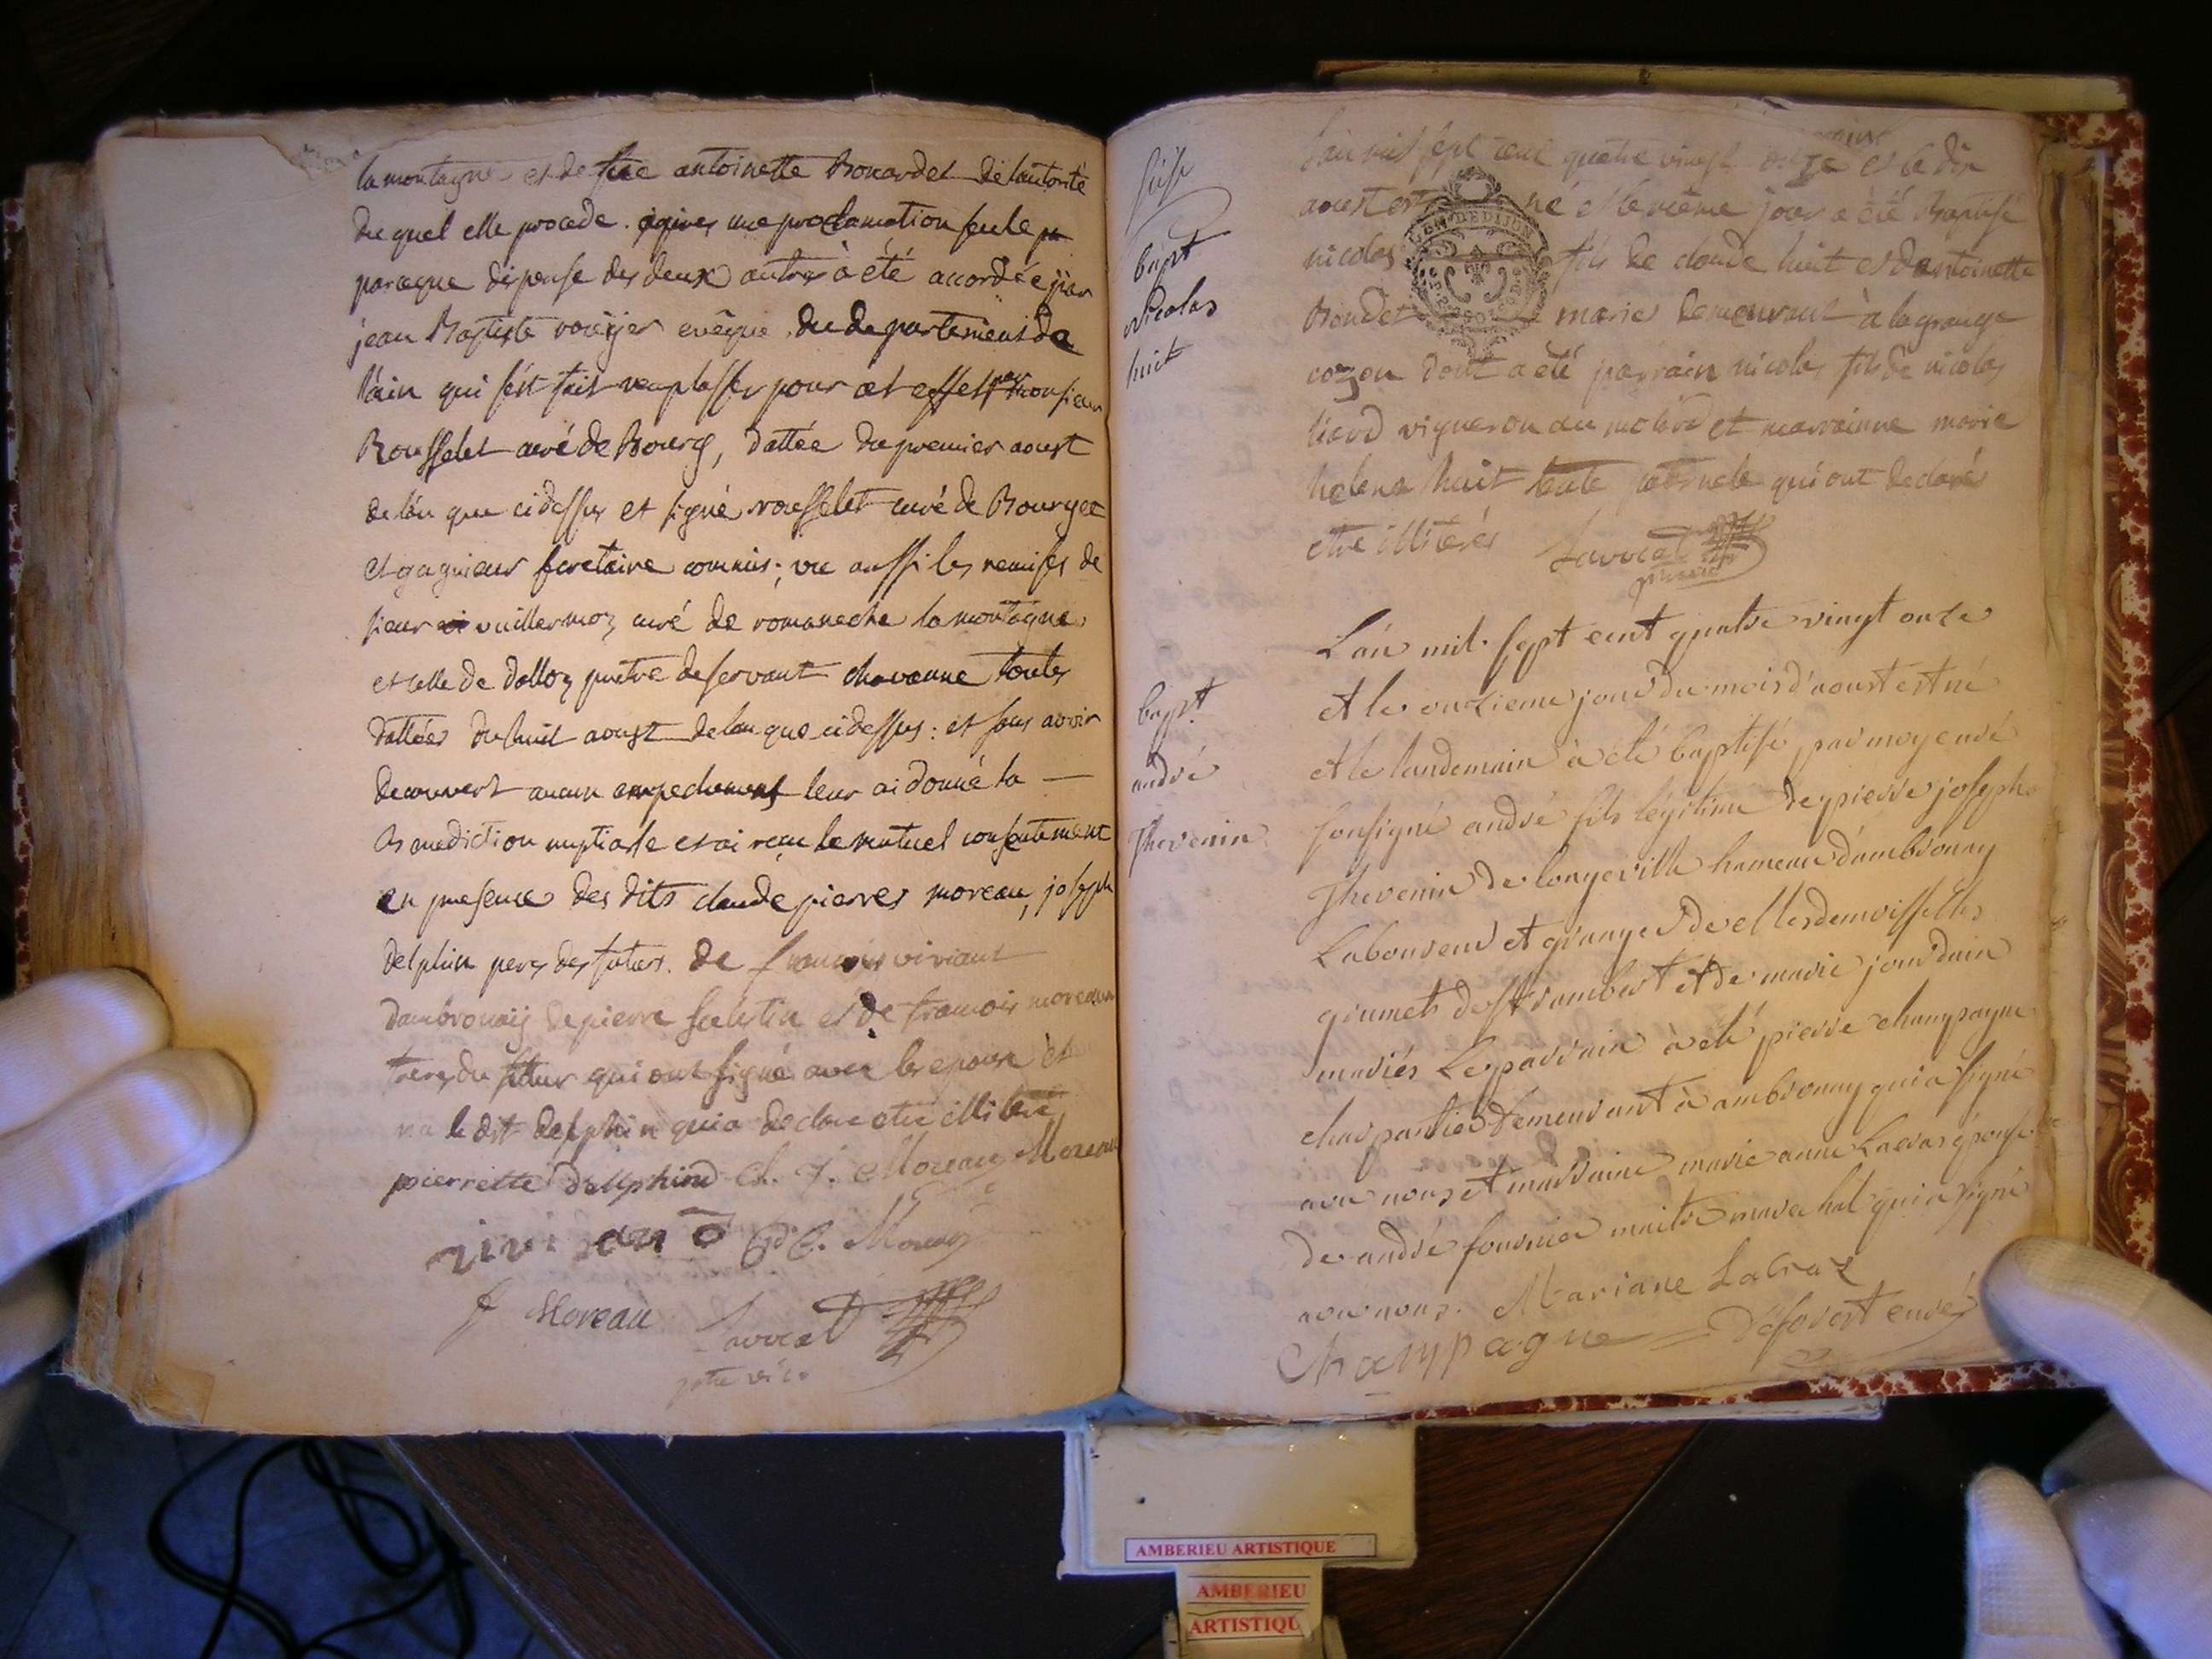 la montagne et de feue antoinette Bonardet de l'autorité
du quel elle procede. apres une proclamation seule
parceque dispense des deux autres à été accordée par
jean Baptiste roïejer eveque du departement de
l'ain qui s'est fait remplasser pour cet effest par monsieur
Rousselet curé de Bourg, dattée du premier aoust
de l'an que cidessus et signé rousselet curé de Bourg et
et gagnieur secretaire commis; vu aussi les remises de
sieur vuillermoz curé de romaneche la montagne
et celle de dalloz pretre deservant chavanne toutes
dattées du huit aoust de lan que cidessus: et sans avoir
decouvert aucun empechement leur ai donné la
Benediction nuptiale et ai recu le mutuel consentement
en presence des dits claude pierres moreau, joseph
delphin peres des futurs. de francois viviant
dambronaij de pierre celestin et de francois moreau
freres du futur qui ont signé avec les epoux et
na le dit delphin qui a declaré etre illiteré
pierrette dellphind cl. p. Moreau Moreau
vivian C. Moreau
f Moreau Savocat
ptre vic.
bapt
Nicolas
huit
L'an mil sept cent quatre vingt onze et le dix
aoust est né et le meme jour a été Baptisé
nicolas fils de claude huit et d'antoinette
Bondet marié demeurant à la grange
cozon dont a été parrain nicolas fils de nicolas
liard vigneron au molard et marrainne marie
helene huit tante paternele qui ont declaré
etre illiterés Savocat
LYON DE DIJON
bapt
andré
Thevenin
L'an mil sept cent quatre vingt onze
et le onzieme jour du mois d'aoust est né
et le landemain à été baptisé par moy curé
sousigné andré fils légitime de pierre joseph
Thevenin de longeville hameau d'ambronay
Laboureur et granger de mlles demoisselles
grumet de st rambert et de marie jourdain
mariés Le parrain à été pierre champagne
charpantier demeurant à ambronay qui a signé
avec nous et marraine marie anne Lacras épouse
de andré fournier maitre marechal qui a signé
avec nous. Mariane Lacraz
Champagne Deforest curé
AMBERIEU ARTISTIQUE
AMBERIEU
ARTISTIQU